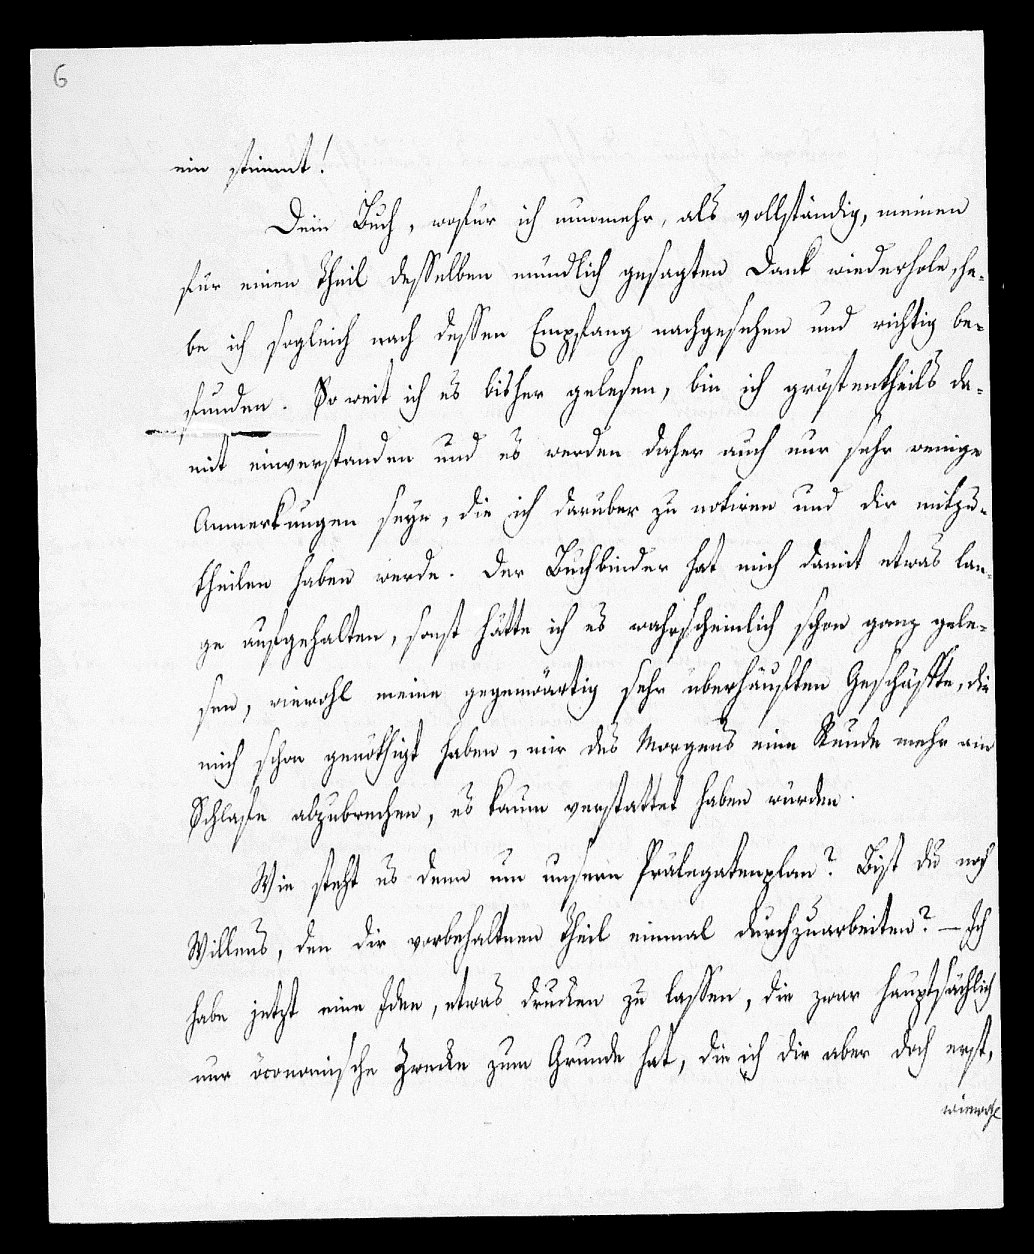 6
ein stimmt!
Dein Buch, wofür ich nunmehr, als vollständig, meinen
für einen Theil desselben mündlich gesagten Dank wiederhole, ha-
be ich sogleich nach dessen Empfang nachgesehen und richtig be-
funden. So weit ich es bisher gelesen, bin ich gröstentheils da-
mit einverstanden und es werden daher auch nur sehr wenige
Anmerkungen seyn, die ich darüber zu notiren und dir mitzu-
theilen haben werde. Der Buchbinder hat mich damit etwas lan-
ge aufgehalten, sonst hätte ich es wahrscheinlich schon ganz gele-
sen, wiewohl meine gegenwärtig sehr überhäuften Geschäfte, die
mich schon genöthigt haben, mir des Morgens eine Stunde mehr am
Schlafe abzubrechen, es kaum verstattet haben würden.
Wie steht es denn um unsern Prälegatenplan? Bist du noch
Willens, den dir vorbehaltnen Theil einmal durchzuarbeiten? — Ich
habe jetzt eine Idee, etwas drucken zu lassen, die zwar hauptsächlich
nur öconomische Zwecke zum Grunde hat, die ich dir aber doch erst,
wiewohl